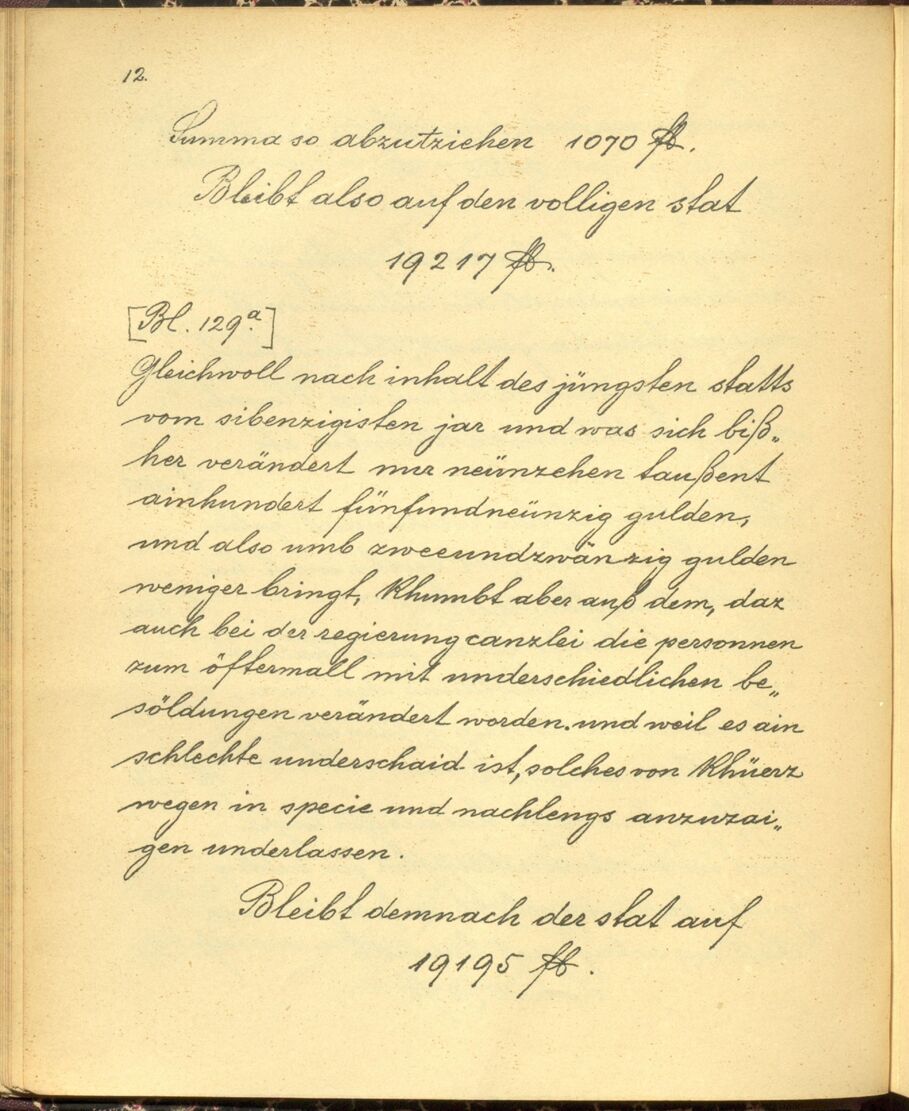 12.
Summa so abzutziehen 1070 fl.
Bleibt also auf den volligen stat
19217 fl.
[Bl. 129ª.]
Gleichwoll nach inhalt des jüngsten statts
vom sibenzigisten jar und was sich biß„
her verändert nur neünzehen taußent
ainhundert fünfundneünzig gulden,
und also umb zweeundzwänzig gulden
weniger bringt, khumbt aber auß dem, daz
auch bei der regierungcanzlei die personnen
zum öftermall mit underschiedlichen be„
söldungen verändert worden. und weil es ain
schlechte underschaid ist, solches von khüerz
wegen in specie und nachlengs anzuzai„
gen underlassen.
Bleibt demnach der stat auf
19195 fl.